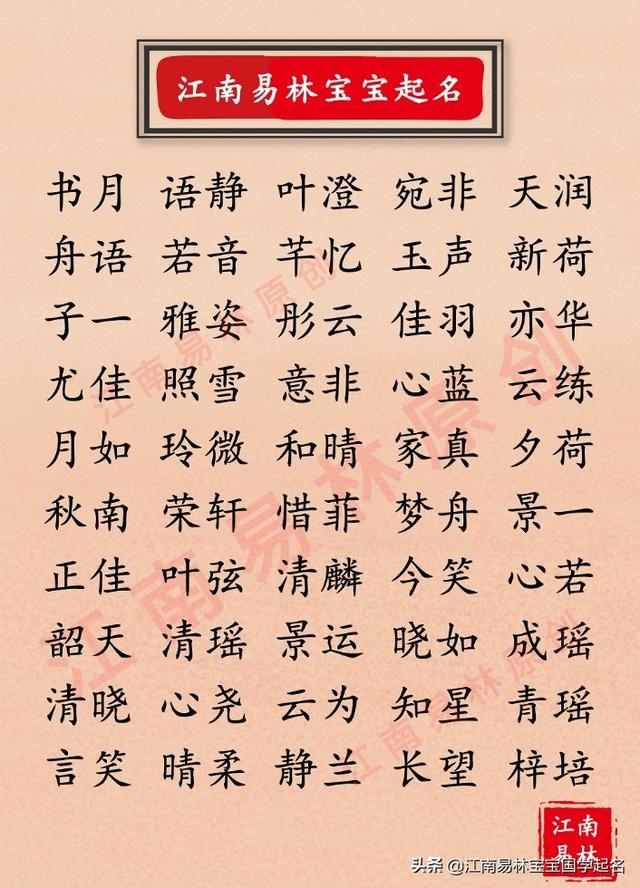 江南易林宝宝起名
书月 语静 叶澄 宛非 天润
舟语 若音 芊忆 玉声 新荷
子一 雅姿 彤云 佳羽 亦华
尤佳 照雪 意非 心蓝 云练
月如 玲微 和晴 家真 夕荷
秋南 荣轩 惜菲 梦舟 景一
正佳 叶弦 清麟 今笑 心若
韶天 清瑶 景运 晓如 成瑶
清晓 心尧 云为 知星 青瑶
言笑 晴柔 静兰 长望 梓培
江南易林原创
江南易林原创
江南易林原创
江南
易林
头条 @江南易林宝宝国学起名